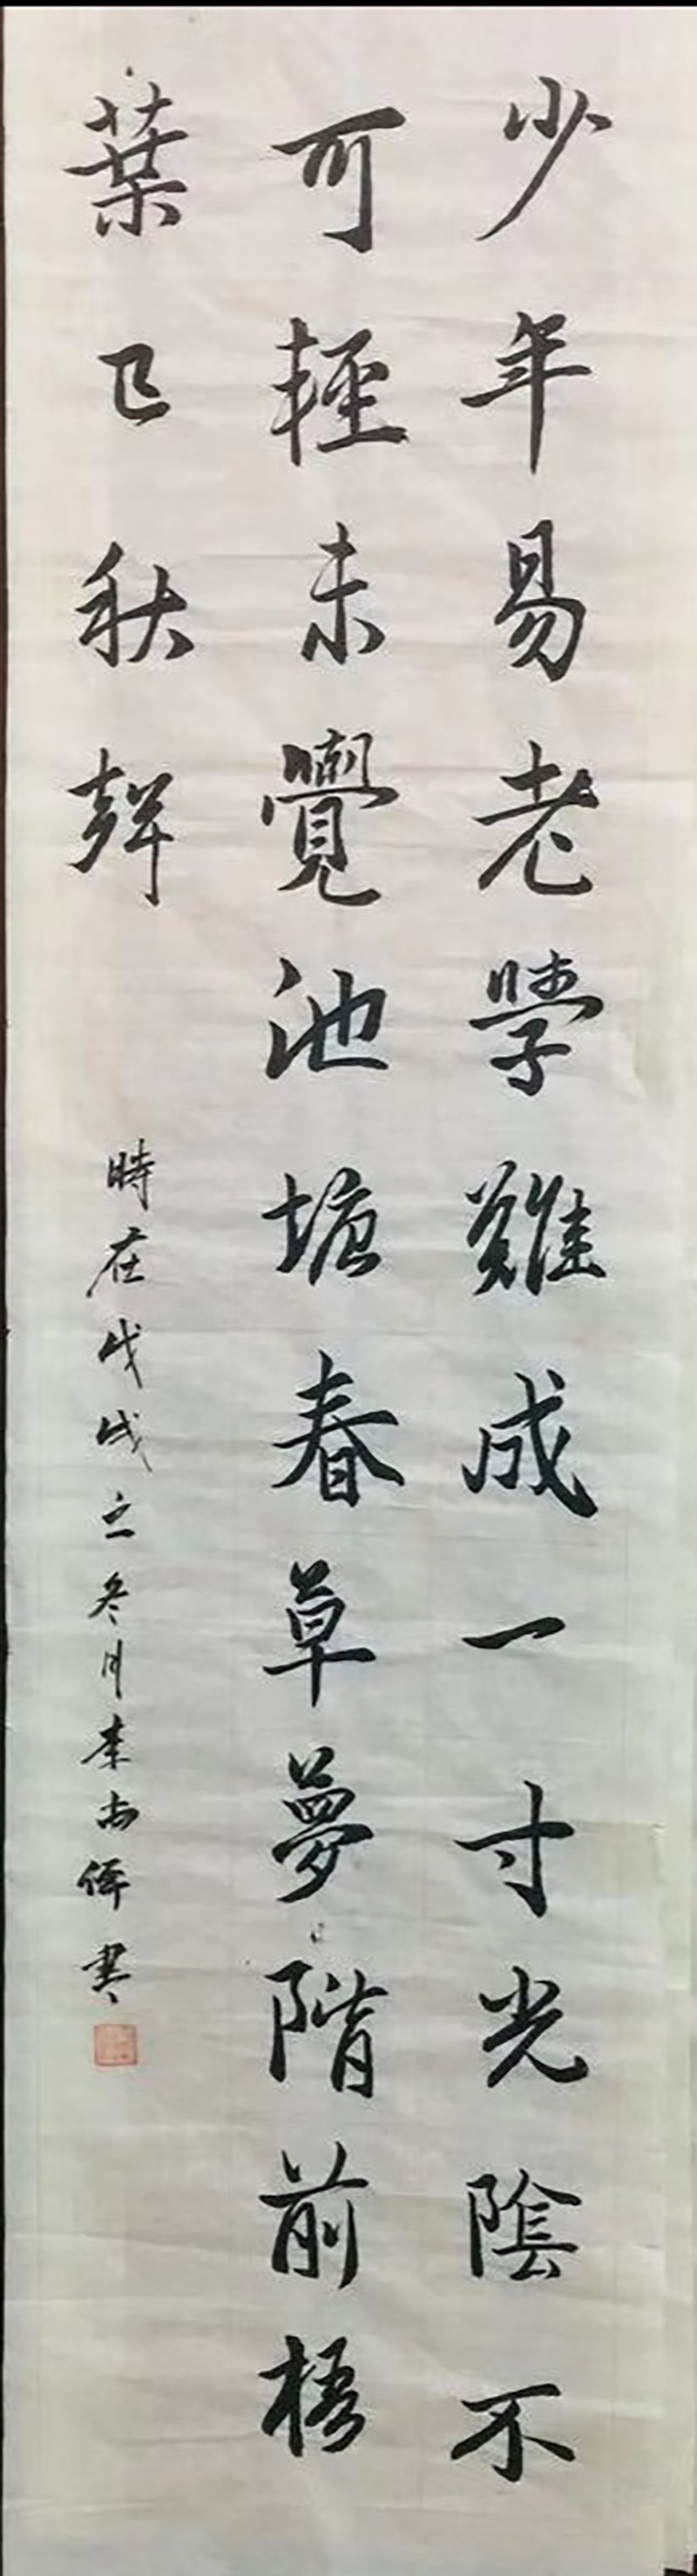 少年易老學難成一寸光陰不
可輕未覺池塘春草夢階前梧
葉已秋聲
時在戊戌之冬月李尚偉書